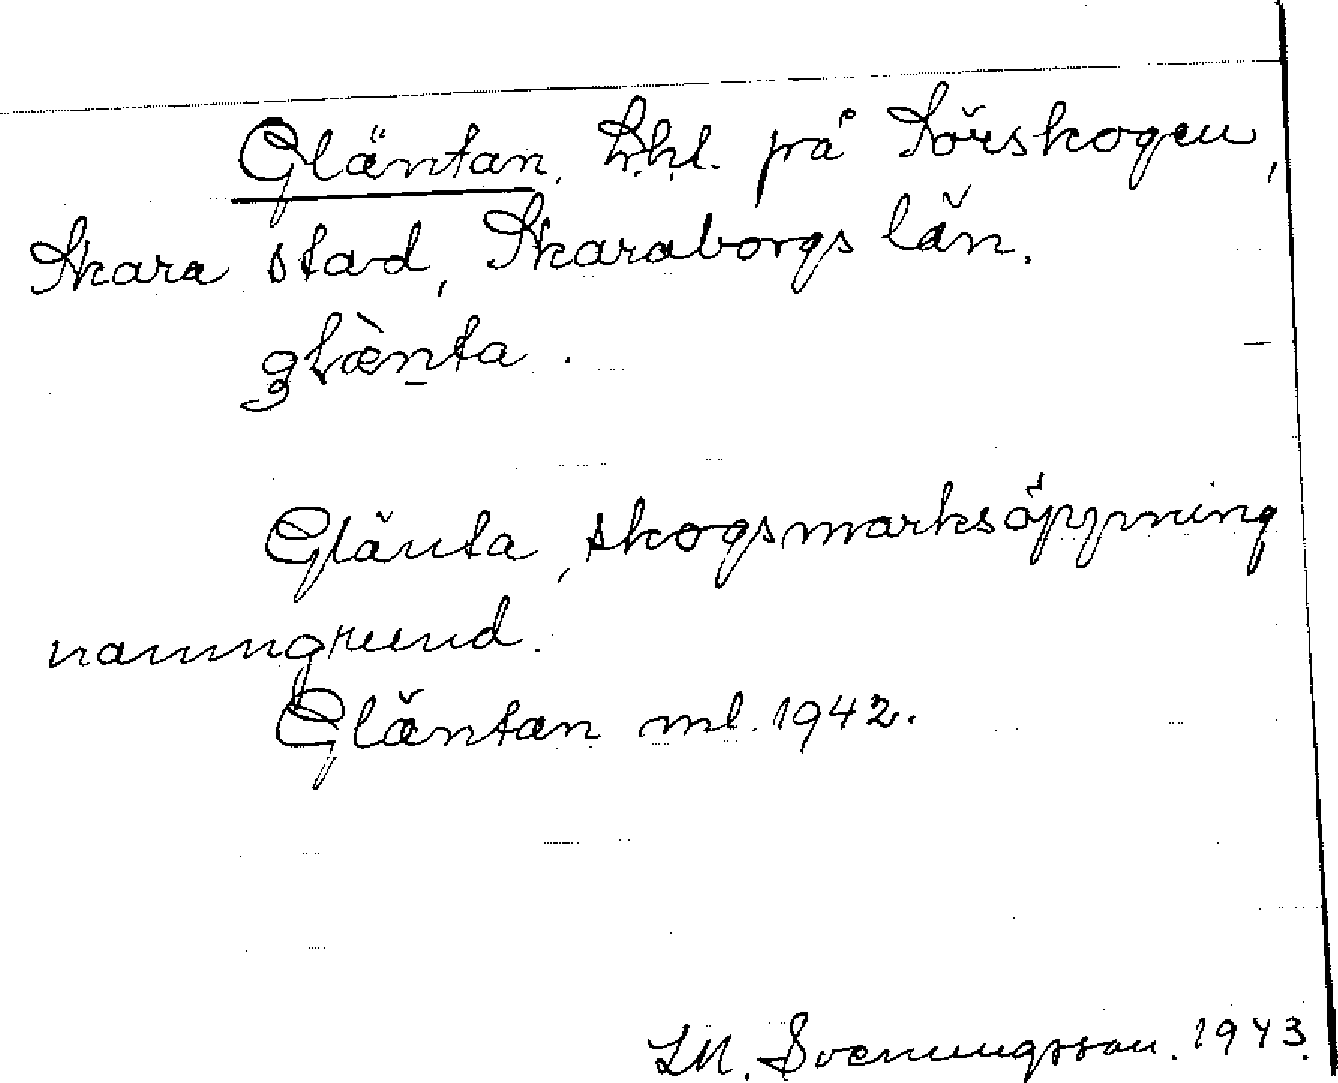 Gläntan, Lhl. på Sörskogen,
Skara stad, Skaraborgs län.
glænta.
Glänta, skogsmarksöppning
namngrund.
Gläntan ml. 1942.
LM. Svenungsson. 1943.